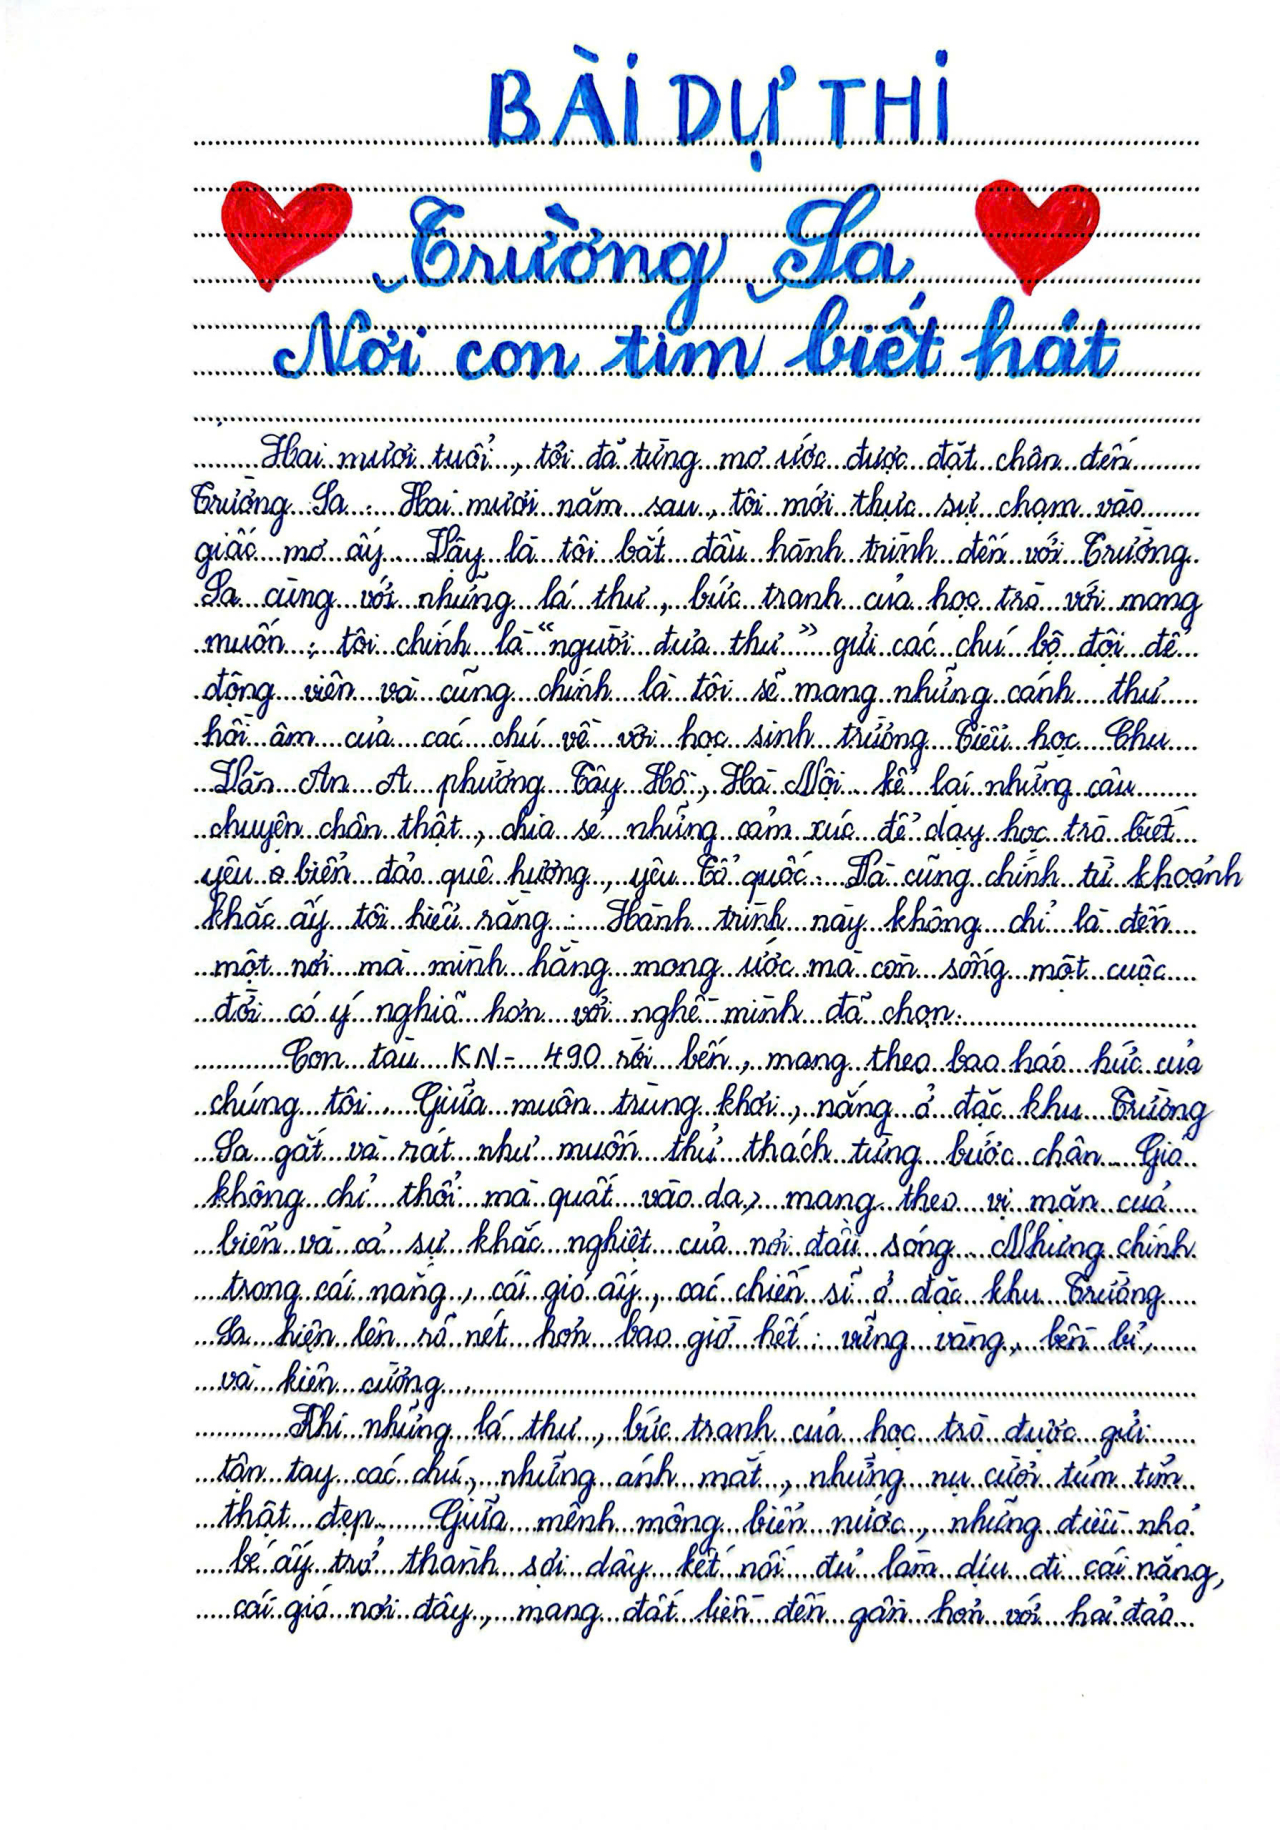 BÀI DỰ THI
Trường Sa
Nơi con tim biết hát
Hai mươi tuổi, tôi đã từng mơ ước được đặt chân đến
Trường Sa. Hai mươi năm sau, tôi mới thực sự chạm vào
giấc mơ ấy. Vậy là tôi bắt đầu hành trình đến với Trường
Sa cùng với những lá thư, bức tranh của học trò với mong
muốn: tôi chính là "người đưa thư" gửi các chú bộ đội để
động viên và cũng chính là tôi sẽ mang những cánh thư
hồi âm của các chú về với học sinh trường Tiểu học Chu
Văn An A phường Tây Hồ, Hà Nội kể lại những câu
chuyện chân thật, chia sẻ những cảm xúc để dạy học trò biết
yêu biển đảo quê hương, yêu Tổ quốc. Và cũng chính từ khoảnh
khắc ấy tôi hiểu rằng: Hành trình này không chỉ là đến
một nơi mà mình hằng mong ước mà còn sống một cuộc
đời có ý nghĩa hơn với nghề mình đã chọn.
Con tàu KN- 490 rời bến, mang theo bao háo hức của
chúng tôi. Giữa muôn trùng khơi, nắng ở đặc khu Trường
Sa gắt và rát như muốn thử thách từng bước chân. Gió
không chỉ thổi mà quất vào da, mang theo vị mặn của
biển và cả sự khắc nghiệt của nơi đầu sóng. Nhưng chính
trong cái nắng, cái gió ấy, các chiến sĩ ở đặc khu Trường
Sa hiện lên rõ nét hơn bao giờ hết: vững vàng, bền bỉ,
và kiên cường.
Khi những lá thư, bức tranh của học trò được gửi
tận tay các chú, những ánh mắt, những nụ cười tủm tỉm
thật đẹp. Giữa mênh mông biển nước, những điều nhỏ
bé ấy trở thành sợi dây kết nối đủ làm dịu đi cái nắng,
cái gió nơi đây, mang đất liền đến gần hơn với hải đảo